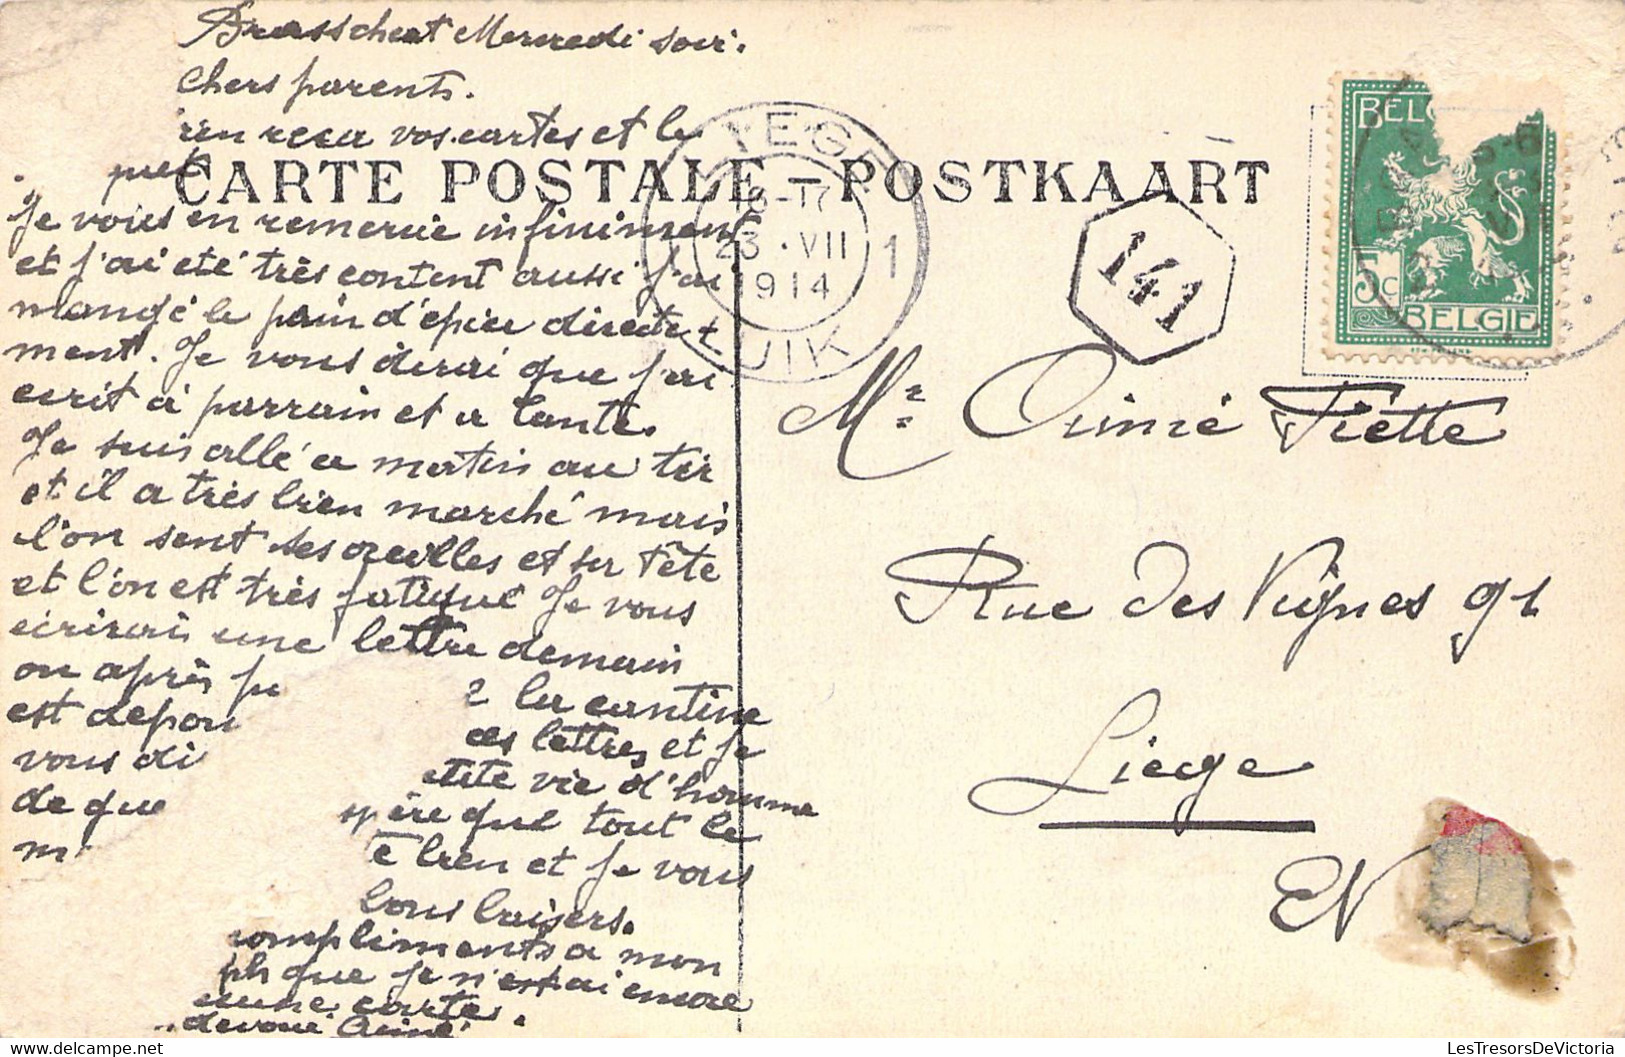 Brasschaet Mercredi soir.
Chers parents.
bien recu vos cartes et le
CARTE POSTALE – POSTKAART
Je vous en remercie infiniment
et j'ai eté très content aussi j'ai
mangé le pain d'épice directe-
ment. Je vous dirai que j'ai
ecrit à parrain et a tante.
Je suis allé ce matin au tir
et il a très bien marché mais
l'on sent ses oreilles et sa tête
et l'on est très fatigué Je vous
écrirai une lettre demain
ou après
la cantine
est depou
des lettres et je
vous di
etite vie d'homme
de que
père que tout le
m
bien et je vous
bons baisers.
compliments a mon
que je n'est ai encore
aucune carte.
devoué Aimé
LIEGE
18-17
23 . VII
1914
1
LUIK
141
BELG
5c
BELGIE
Mr Aimé Fiette
Rue des Vignes 91
Liege
EV
LesTresorsDeVictoria